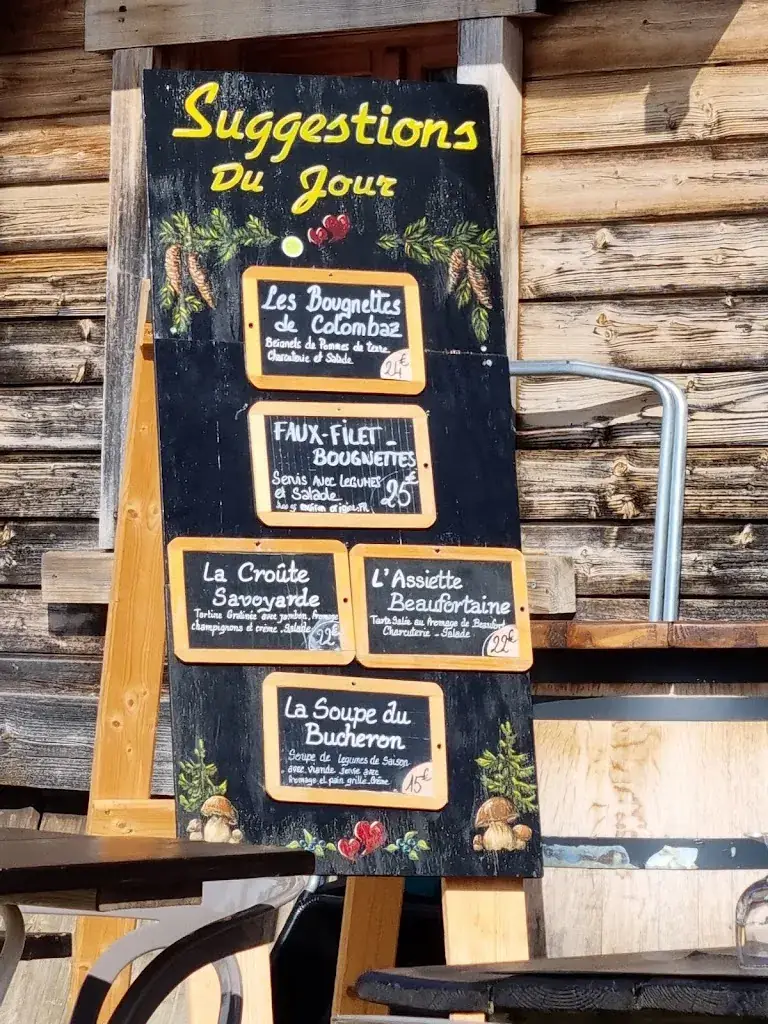 Suggestions
Du Jour
Les Bougnettes
de Colombaz
Beignets de Pommes de terre
Charcuterie et Salade
24€
FAUX-FILET -
BOUGNETTES
Servis AVEC LEGUMES
et Salade
environ origine: FR
26€
La Croûte
Savoyarde
Tartine Gratinée avec jambon, fromage
champignons et crème - Salade
22€
L'Assiette
Beaufortaine
Tarte Salée au fromage de Beaufort
Charcuterie - Salade
22€
La Soupe du
Bucheron
Soupe de legumes de Saison
avec viande servie avec
fromage et pain grillé. Crème
15€